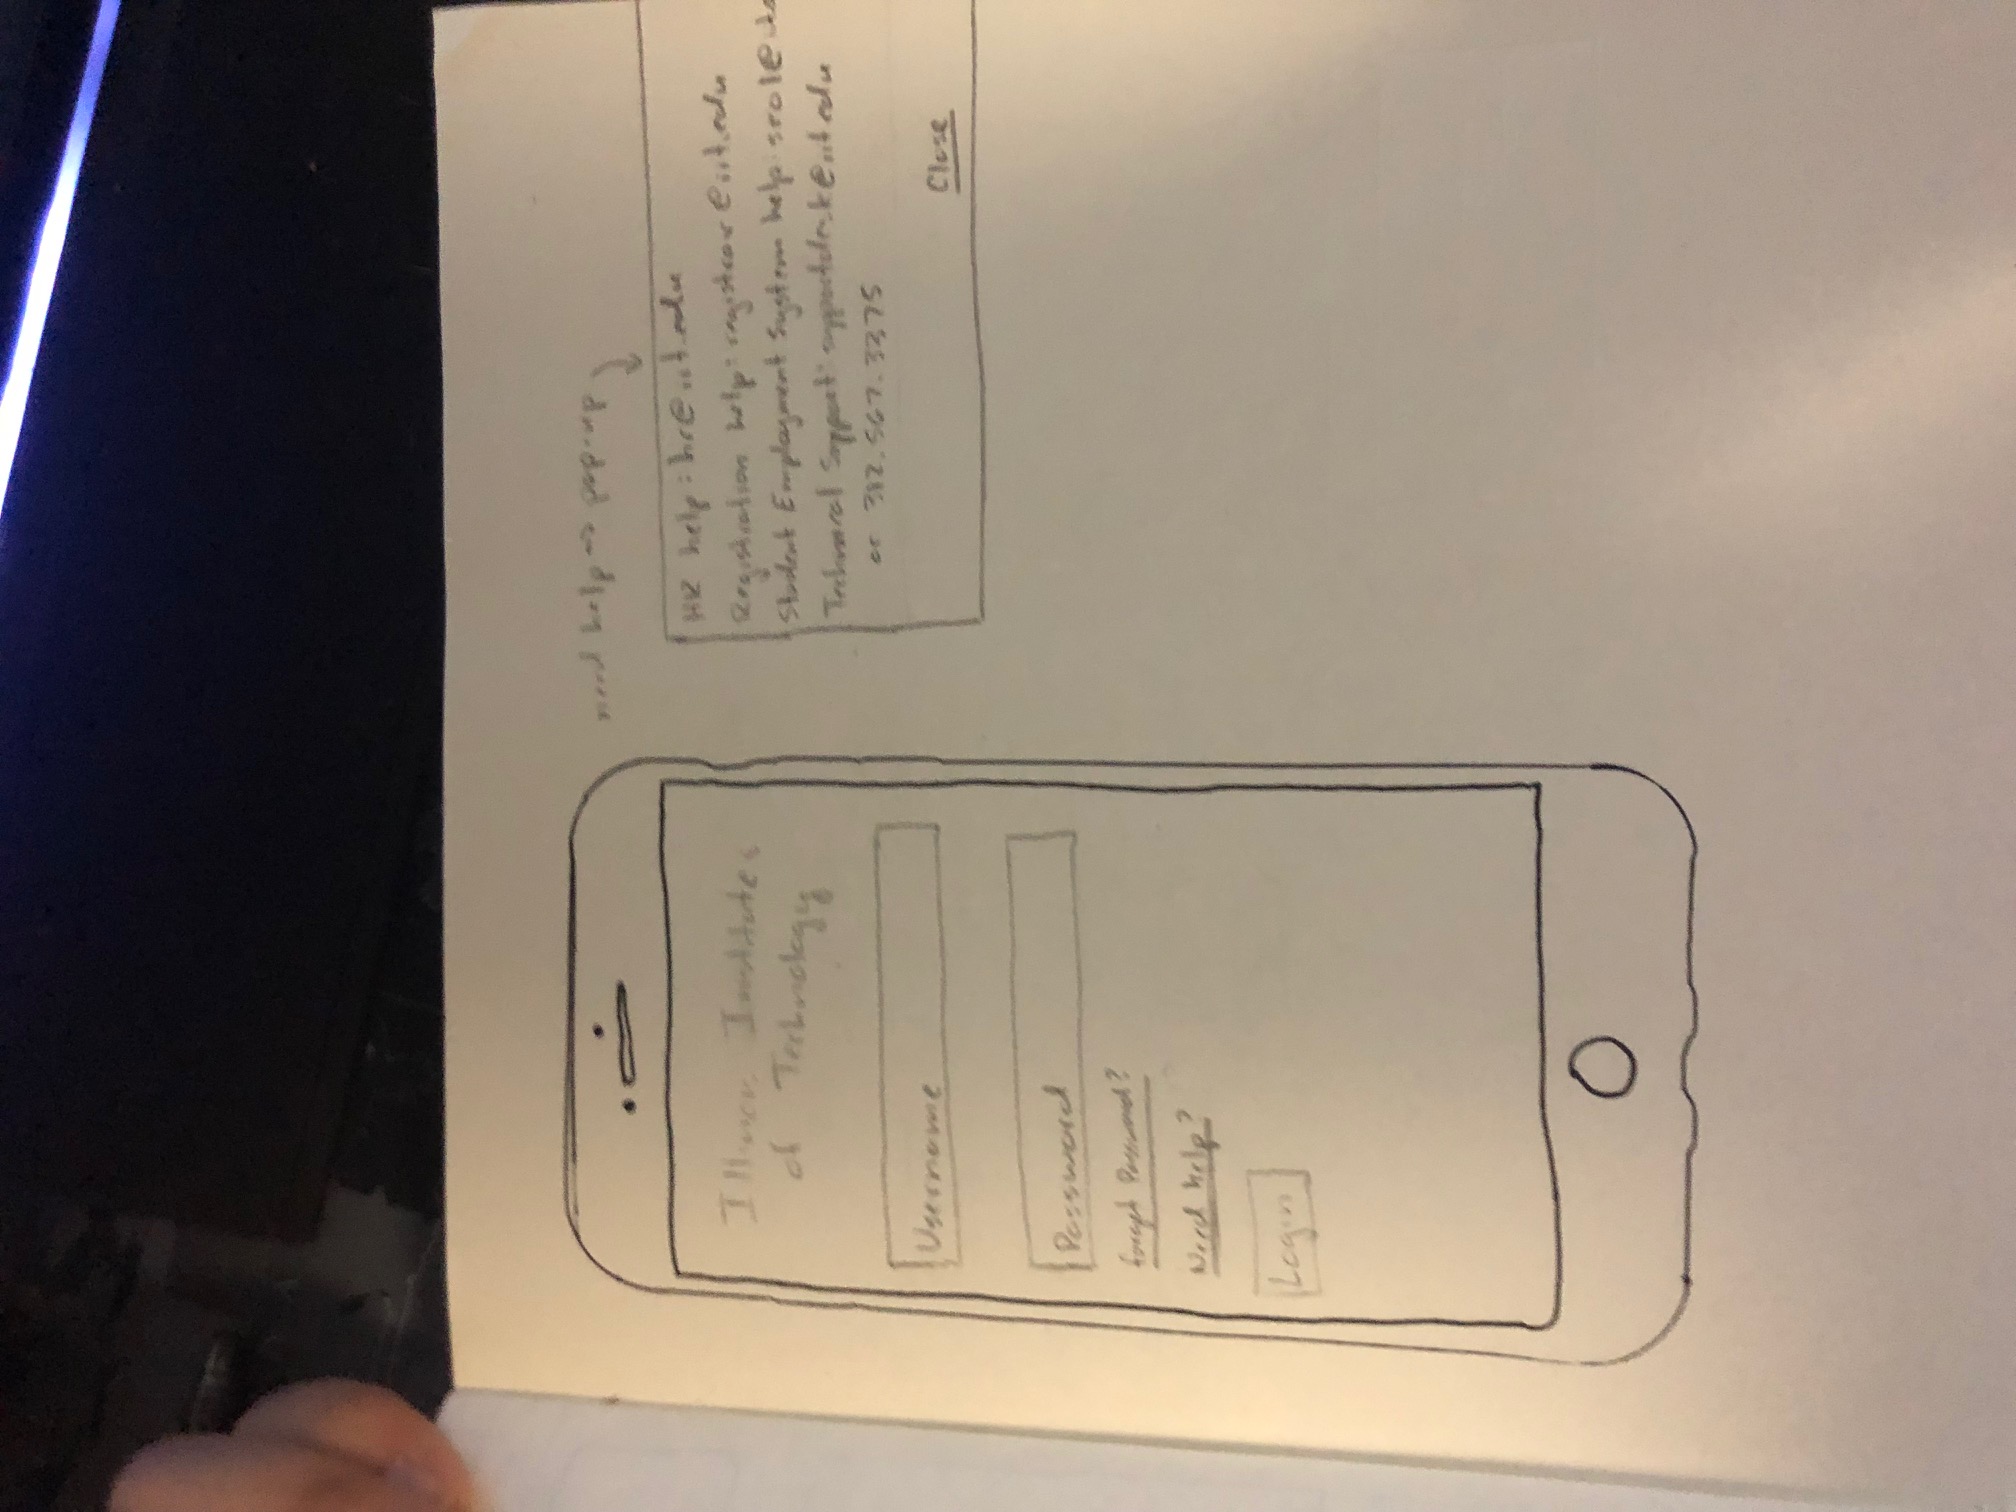 Illinois Institute
of Technology
Username
Password
forgot Password?
Need help?
Login
need help => pop-up
HR help: hr@iit.edu
Registration help: registrar@iit.edu
Student Employment System help:
Technical Support: supportdesk@iit.edu
or 312.567.3375
Close